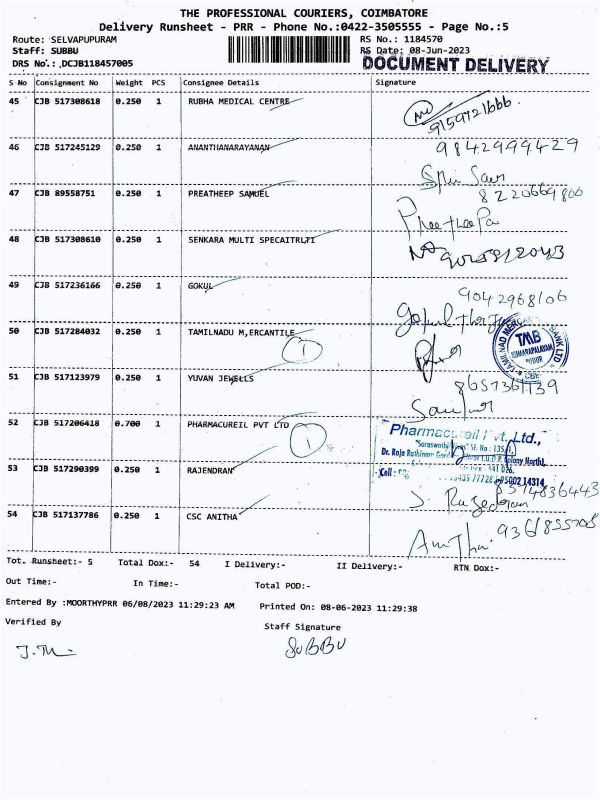 THE PROFESSIONAL COURIERS, COIMBATORE
Delivery Runsheet - PRR - Phone No.:0422-3505555 - Page No.:5
Route: SELVAPUPURAM RS No.: 1184570
Staff: SUBBU RS Date: 08-Jun-2023
DRS No.: DCJB118457005 DOCUMENT DELIVERY
S No Consignment No Weight PCS Consignee Details Signature
45 CJB 517308618 0.250 1 RUBHA MEDICAL CENTRE
9159721666.
46 CJB 517245129 0.250 1 ANANTHANARAYANAN 9842999429
47 CJB 89558751 0.250 1 PREATHEEP SAMUEL 8220669800
48 CJB 517308610 0.250 1 SENKARA MULTI SPECAITRLTI
49 CJB 517236166 0.250 1 GOKUL 9042968106
50 CJB 517284032 0.250 1 TAMILNADU M,ERCANTILE
1
TMB
51 CJB 517123979 0.250 1 YUVAN JEWELLS
52 CJB 517206418 0.700 1 PHARMACUREIL PVT LTD
1
Pharmacureil Pvt. Ltd.,
53 CJB 517290399 0.250 1 RAJENDRAN
54 CJB 517137786 0.250 1 CSC ANITHA
Tot. Runsheet:- 5 Total Dox:- 54 I Delivery:- II Delivery:- RTN Dox:-
Out Time:- In Time:- Total POD:-
Entered By :MOORTHYPRR 06/08/2023 11:29:23 AM Printed On: 08-06-2023 11:29:38
Verified By Staff Signature
SUBBU